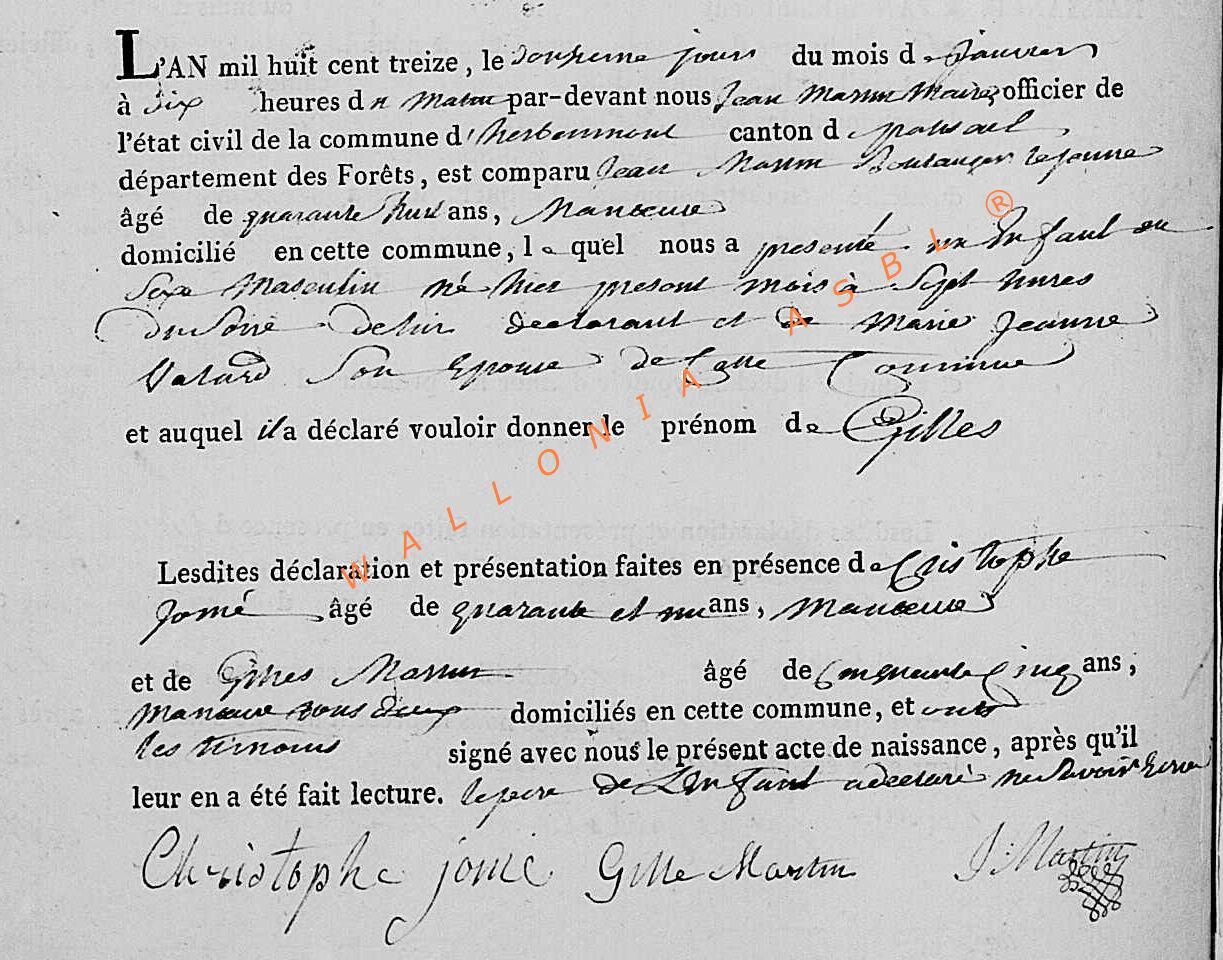 L'AN mil huit cent treize, le douzieme jour du mois de Janvier
à Six heures du Matin par-devant nous Jean Martin Maire, officier de
l'état civil de la commune d'herbeumont canton de paliseul,
département des Forêts, est comparu Jean Martin Boulanger le jeune
âgé de quarante huit ans, Manoeuvre
domicilié en cette commune, le quel nous a presenté un Enfant du
Sexe Masculin né hier present mois à Sept heures
du Soire de lui declarant et de Marie Jeanne
Son Epouse de Cette Commune
et auquel il a déclaré vouloir donner le prénom de Gilles
Lesdites déclaration et présentation faites en présence de Cristophe
Jomé âgé de quarante et un ans, Manoeuvre
et de Gilles Martin âgé de Cinquante Cinq ans,
Manoeuvre tous deux domiciliés en cette commune, et ont
les temoins signé avec nous le présent acte de naissance, après qu'il
leur en a été fait lecture. le pere de L'Enfant a declaré ne Savoir Ecrire
Christophe jomé Gille Martin J: Martin
WALLONIA ASBL ®